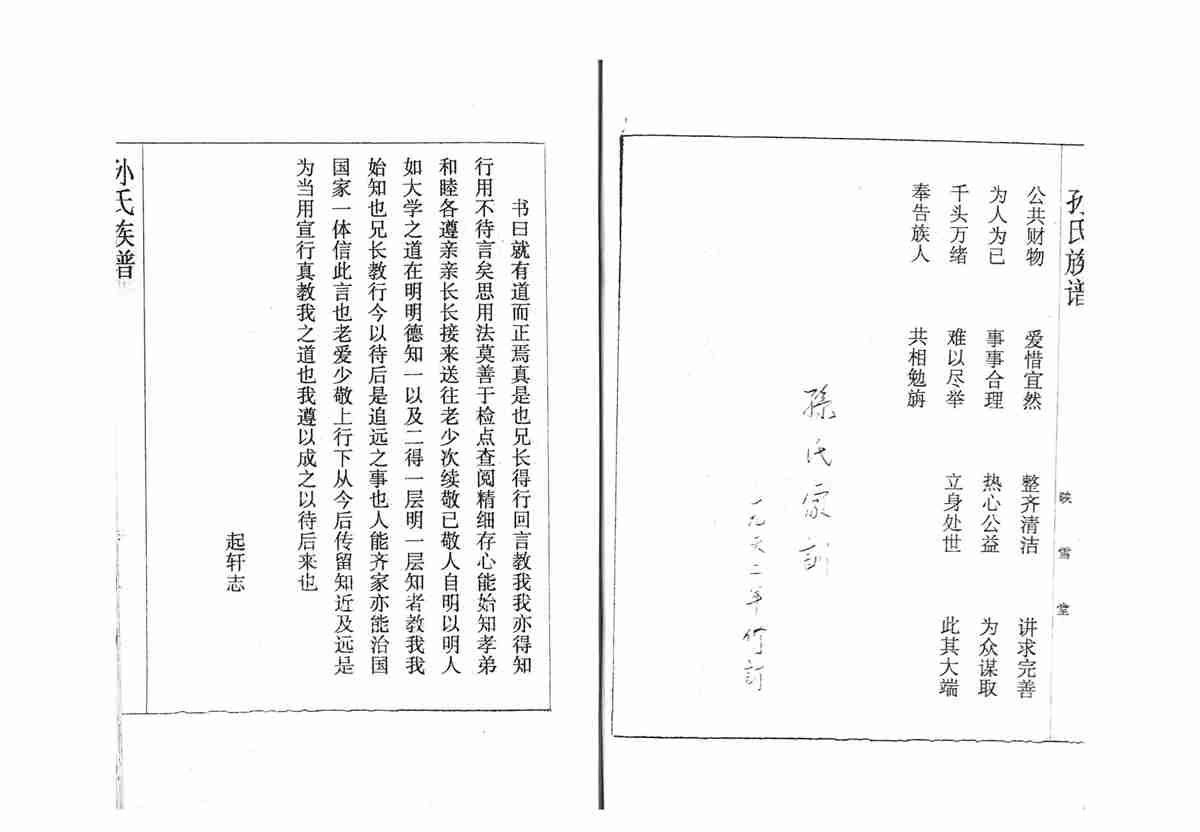 孙氏族谱
映雪堂
公共财物 爱惜宜然 整齐清洁 讲求完善
为人为已 事事合理 热心公益 为众谋取
千头万绪 难以尽举 立身处世 此其大端
奉告族人 共相勉旃
孫氏家訓
书曰就有道而正焉真是也兄长得行回言教我我亦得知
行用不待言矣思用法莫善于检点查阅精细存心能始知孝弟
和睦各遵亲亲长长接来送往老少次续敬已敬人自明以明人
如大学之道在明明德知一以及二得一层明一层知者教我我
始知也兄长教行今以待后是追远之事也人能齐家亦能治国
国家一体信此言也老爱少敬上行下从今后传留知近及远是
为当用宣行真教我之道也我遵以成之以待后来也
起轩志
孙氏族谱